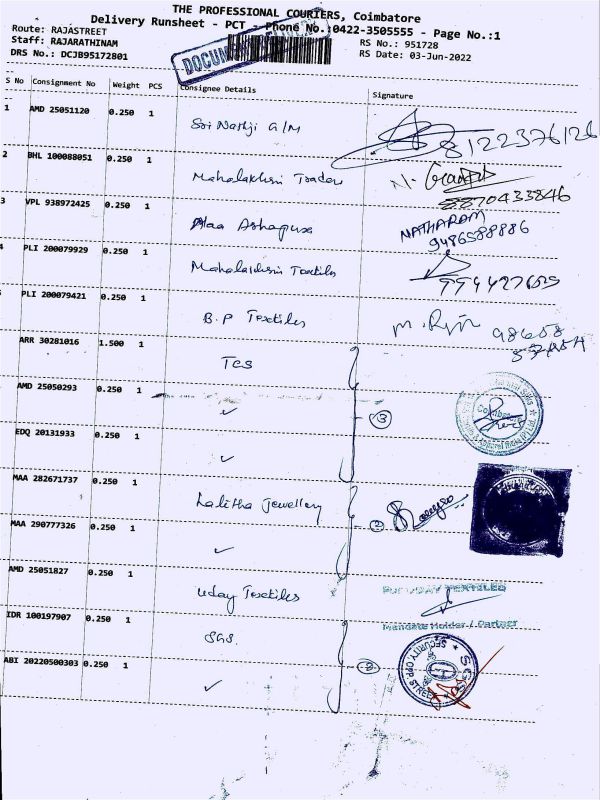 THE PROFESSIONAL COURIERS, Coimbatore
Delivery Runsheet - PCT - Phone No.:0422-3505555 - Page No.:1
Route: RAJASTREET
Staff: RAJARATHINAM
RS No.: 951728
DRS No.: DCJB95172801
RS Date: 03-Jun-2022
S No Consignment No Weight PCS Consignee Details Signature
1 AMD 25051120 0.250 1 Sri Nathji G/M 8122376126
2 BHL 100088051 0.250 1 Mahalakshmi Traders
3 VPL 938972425 0.250 1 Maa Ashapura NATHARAM
9486588886
4 PLI 200079929 0.250 1 Mahalakshmi Textiles
PLI 200079421 0.250 1 B.P Textiles 98658
ARR 30281016 1.500 1 TCS
AMD 25050293 0.250 1 ✓ 3
EDQ 20131933 0.250 1 ✓
MAA 282671737 0.250 1 Lalitha Jewellery 2
MAA 290777326 0.250 1 ✓
AMD 25051827 0.250 1 Uday Textiles For UDAY TEXTILES
Mandate Holder / Partner
IDR 100197907 0.250 1 SGS.
ABI 20220500303 0.250 1 ✓ 2